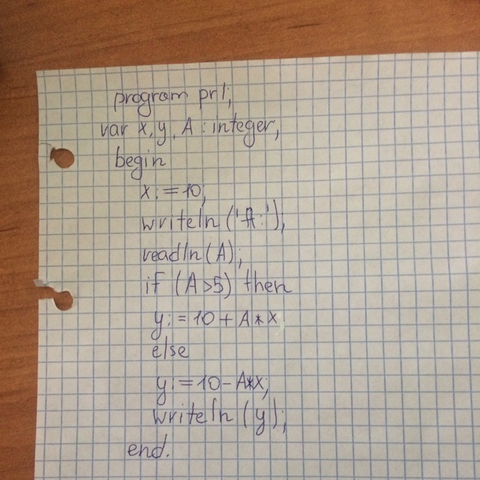 program pr1;
var x, y, A : integer;
begin
x := 10;
writeln ('A:');
readln (A);
if (A>5) then
y := 10 + A*x
else
y := 10 - A*x;
writeln (y);
end.